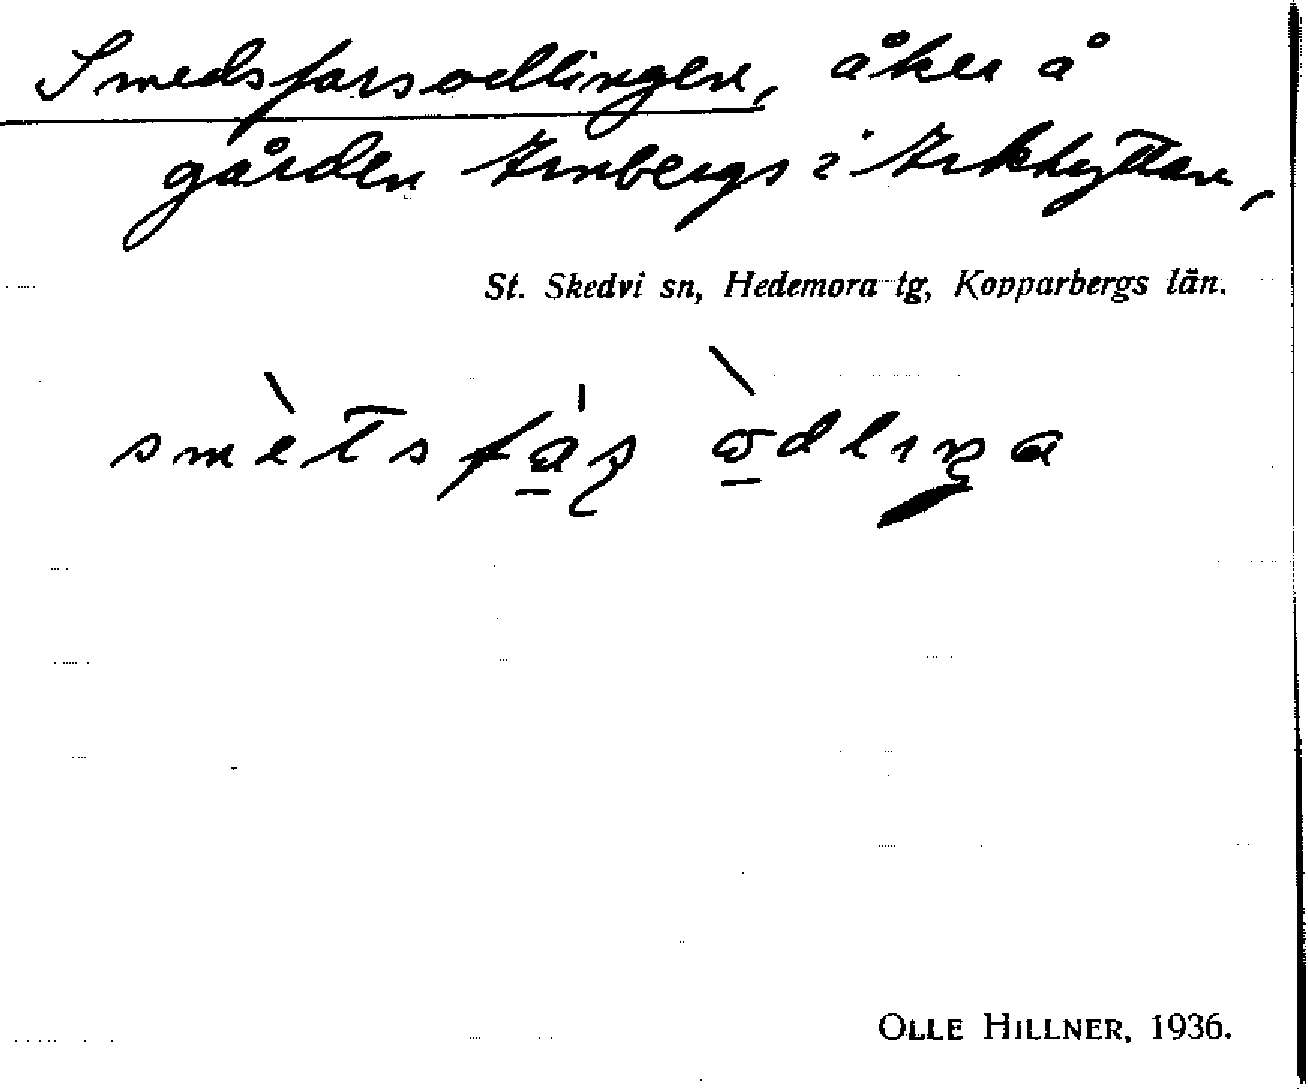 Smedsfarsodlingen, åker å
gården Arnbergs i Arkhyttan,
St. Skedvi sn, Hedemora tg, Kopparbergs län.
OLLE HILLNER, 1936.